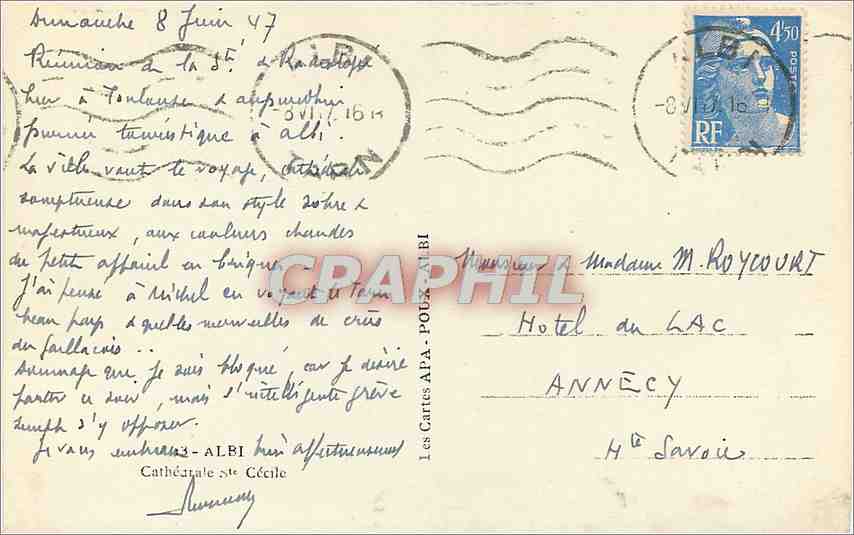 Dimanche 8 Juin 47
Réunion de la Sté de Radiologie
hier à Toulouse & aujourd'hui
journée touristique à Albi.
La ville vaut le voyage, cathédrale
somptueuse dans son style sobre &
majestueux, aux couleurs chaudes
du petit appareil en briques
J'ai pensé à Michel en voyant le Tarn
beau pays & quelles merveilles de crûs
du Gaillacois ..
Dommage que je sois bloqué, car je désire
partir ce soir, mais l'intelligente grève
s'y opposer.
Je vous embrasse bien affectueusement
- ALBI
Cathédrale Ste Cécile
Les Cartes APA - POUX - ALBI
CPAPHIL
ALBI
-8 VI 16
TARN
ALBI
-8 VI 16
4f50
POSTES
RF
Monsieur & Madame M. ROYCOURT
Hotel du LAC
ANNECY
Hte Savoie